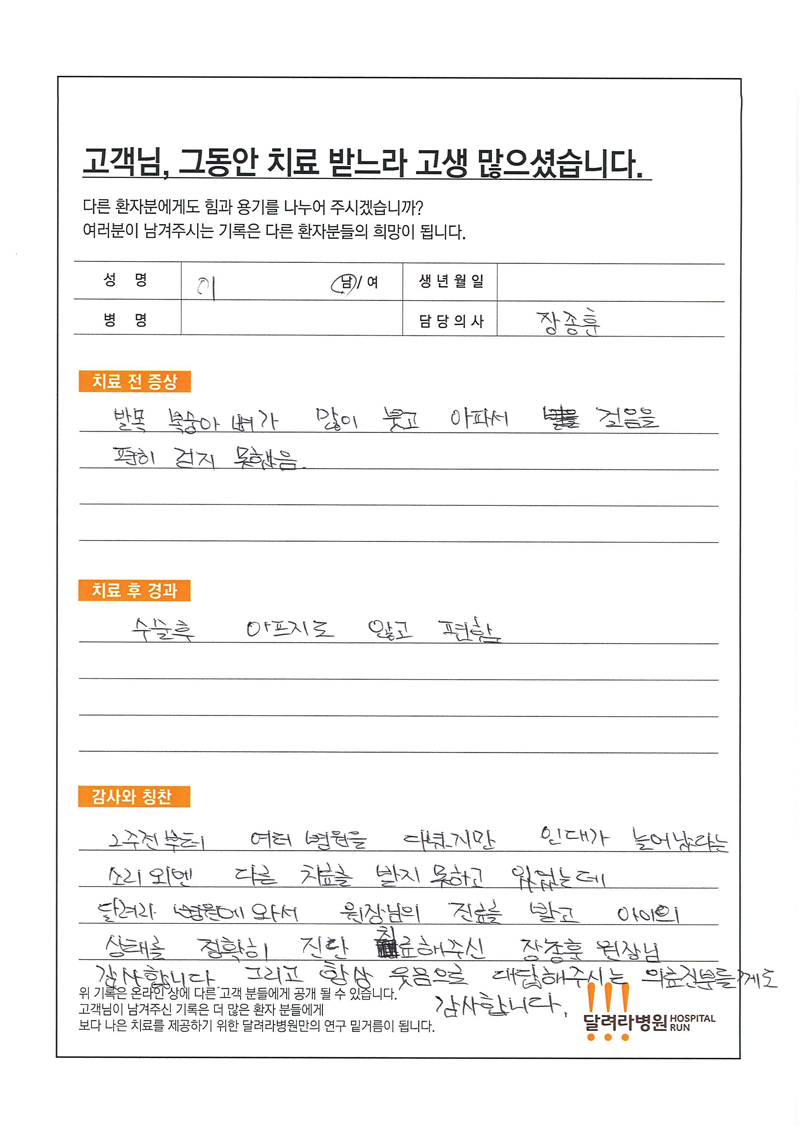 고객님, 그동안 치료 받느라 고생 많으셨습니다.
다른 환자분에게도 힘과 용기를 나누어 주시겠습니까?
여러분이 남겨주시는 기록은 다른 환자분들의 희망이 됩니다.
성 명 이 남/여 생년월일
병 명 담당의사 장종훈
치료 전 증상
발목 복숭아 뼈가 많이 붓고 아파서 걸음을
편히 걷지 못했음.
치료 후 경과
수술후 아프지도 않고 편함
감사와 칭찬
2주전부터 여러 병원을 다녔지만 인대가 늘어났다는
소리 외엔 다른 치료를 받지 못하고 있었는데
달려라 병원에 와서 원장님의 진료를 받고 아이의
상태를 정확히 진단 치료해주신 장종훈 원장님
감사합니다 그리고 항상 웃음으로 대답해주시는 의료진분들께도
감사합니다.
위 기록은 온라인 상에 다른 고객 분들에게 공개 될 수 있습니다.
고객님이 남겨주신 기록은 더 많은 환자 분들에게
보다 나은 치료를 제공하기 위한 달려라병원만의 연구 밑거름이 됩니다.
달려라병원 HOSPITAL RUN